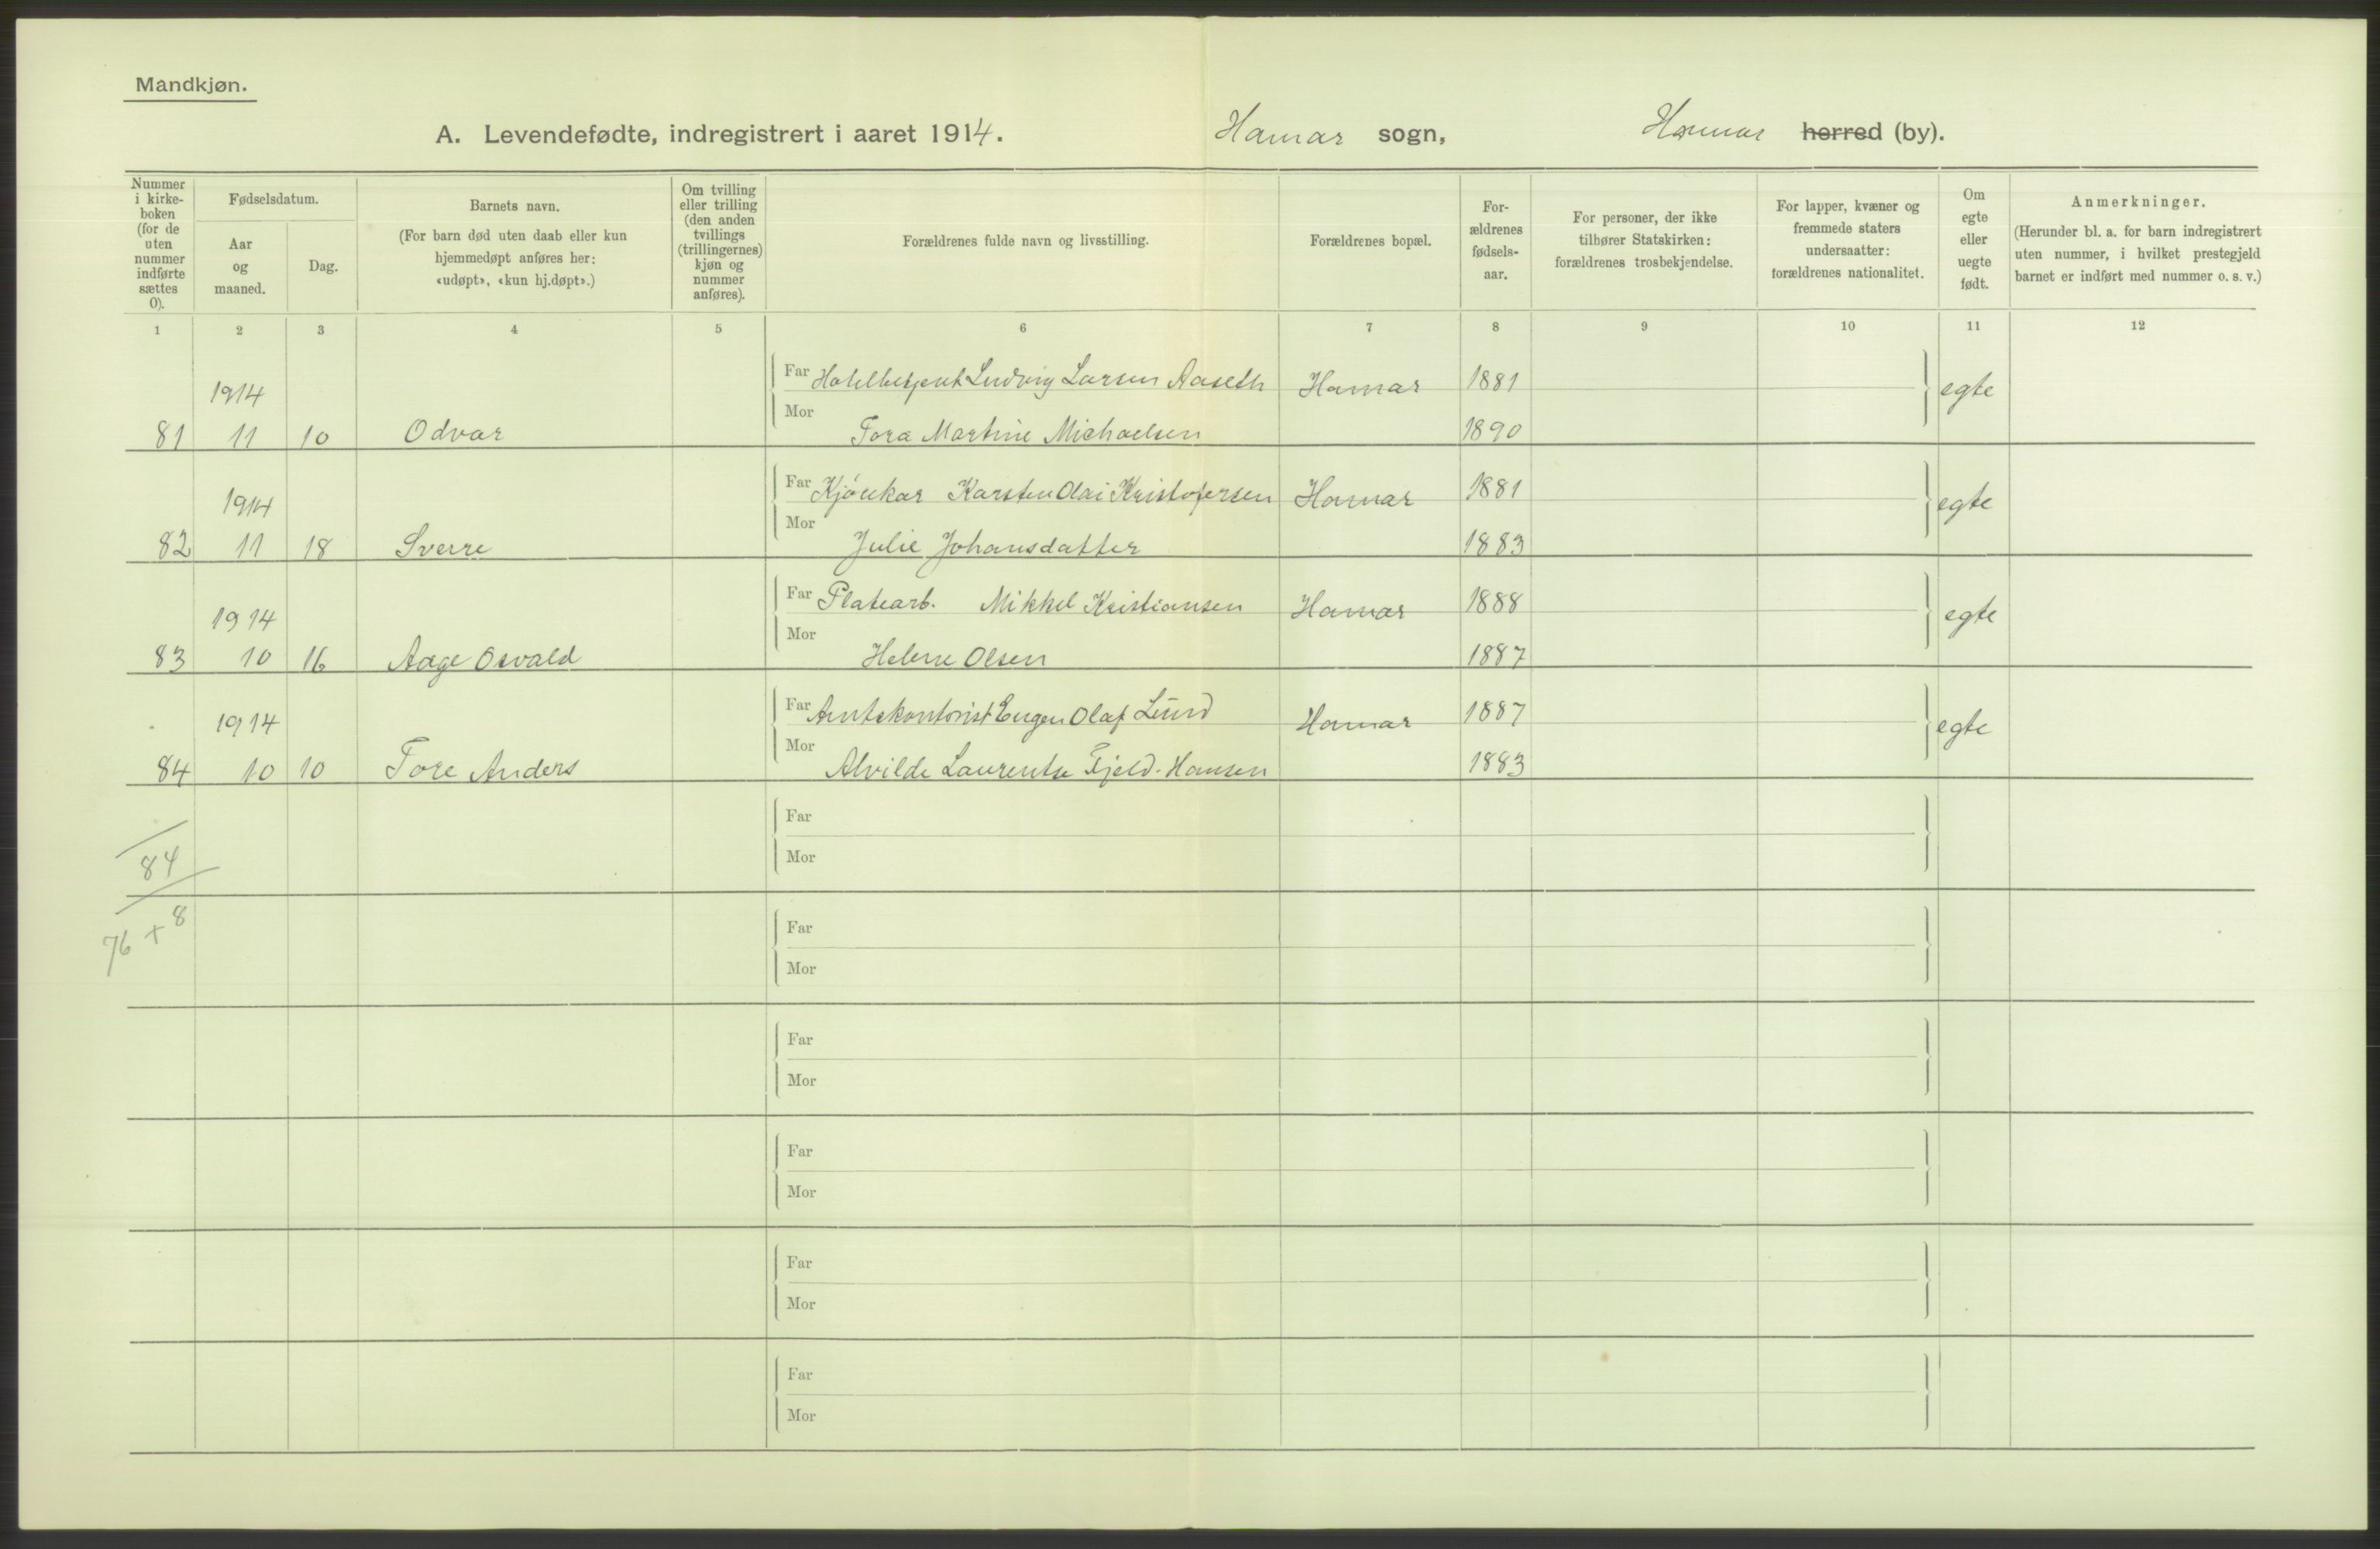 Mandkjøn.
A. Levendefødte, indregistrert i aaret 1914. Hamar sogn, Hamar herred (by).
Nummer i kirke-boken (for de uten nummer indførte sættes 0).
Fødselsdatum.
Aar og maaned.
Dag.
Barnets navn.
(For barn død uten daab eller kun hjemmedøpt anføres her: «udøpt», «kun hj.døpt».)
Om tvilling eller trilling (den anden tvillings (trillingernes) kjøn og nummer anføres).
Forældrenes fulde navn og livsstilling.
Forældrenes bopæl.
For-ældrenes fødsels-aar.
For personer, der ikke tilhører Statskirken: forældrenes trosbekjendelse.
For lapper, kvæner og fremmede staters undersaatter: forældrenes nationalitet.
Om egte eller uegte født.
Anmerkninger.
(Herunder bl. a. for barn indregistrert uten nummer, i hvilket prestegjeld barnet er indført med nummer o. s. v.)
1 2 3 4 5 6 7 8 9 10 11 12
1914 Far Hotelbetjent Ludvig Larsen Aaseth Hamar 1881 egte
81 11 10 Odvar Mor Tora Martine Michaelsen 1890
1914 Far Karsten Olai Kristofersen Hamar 1881 egte
82 11 18 Sverre Mor Julie Johansdatter 1883
1914 Far Platearb. Mikkel Kristiansen Hamar 1888 egte
83 10 16 Aage Osvald Mor Helene Olsen 1887
1914 Far Amtskontorist Eugen Olaf Lund Hamar 1887 egte
84 10 10 Tore Anders Mor Alvilde Laurentse Fjeld-Hansen 1883
Far
84 Mor
76 + 8 Far
Mor
Far
Mor
Far
Mor
Far
Mor
Far
Mor